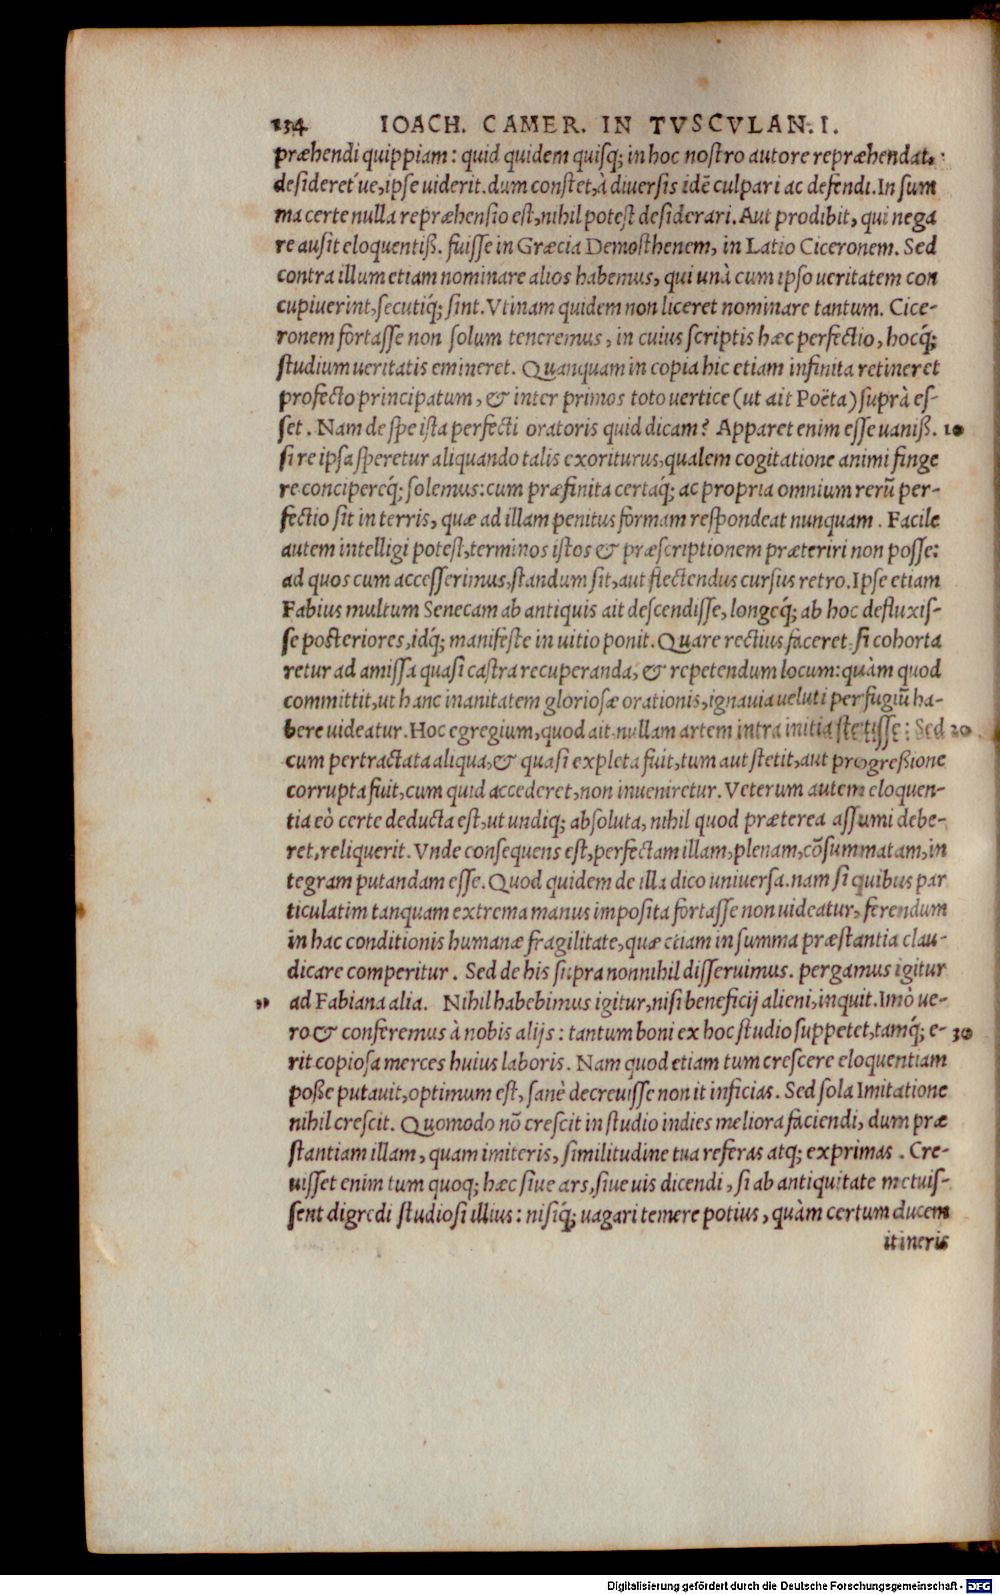 234 IOACH. CAMER. IN TVSCVLAN. I.
præhendi quippiam: quid quidem quisq; in hoc nostro autore repræhendat,
desideret´ue, ipse uiderit. dum constet, à diuersis idē culpari ac defendi. In sum
ma certe nulla repræhensio est, nihil potest desiderari. Aut prodibit, qui nega
re ausit eloquentiß. fuisse in Græcia Demosthenem, in Latio Ciceronem. Sed
contra illum etiam nominare alios habemus, qui unà cum ipso ueritatem con
cupiuerint, secutiq́; sint. Vtinam quidem non liceret nominare tantum. Cice-
ronem fortasse non solum teneremus, in cuius scriptis hæc perfectio, hocq́;
studium ueritatis emineret. Quanquam in copia hic etiam infinita retineret
profecto principatum, & inter primos toto uertice (ut ait Poëta) suprà es-
set. Nam de spe ista perfecti oratoris quid dicam? Apparet enim esse uaniß. 10
si re ipsa speretur aliquando talis exoriturus, qualem cogitatione animi finge
re concipereq́; solemus: cum præfinita certaq́; ac propria omnium rerū per-
fectio sit in terris, quæ ad illam penitus formam respondeat nunquam. Facile
autem intelligi potest, terminos istos & præscriptionem præteriri non posse:
ad quos cum accesserimus, standum sit, aut flectendus cursus retro. Ipse etiam
Fabius multum Senecam ab antiquis ait descendisse, longeq́; ab hoc defluxis-
se posteriores, idq́; manifeste in uitio ponit. Quare rectius faceret, si cohorta
retur ad amissa quasi castra recuperanda, & repetendum locum: quàm quod
committit, ut hanc inanitatem gloriosæ orationis, ignauia ueluti perfugiū ha-
bere uideatur. Hoc egregium, quod ait, nullam artem intra initia stetisse: Sed 20
cum pertractata aliqua, & quasi expleta fuit, tum aut stetit, aut progreßione
corrupta fuit, cum quid accederet, non inueniretur. Veterum autem eloquen-
tia eò certe deducta est, ut undiq; absoluta, nihil quod præterea assumi debe-
ret, reliquerit. Vnde consequens est, perfectam illam, plenam, cōsummatam, in
tegram putandam esse. Quod quidem de illa dico uniuersa. nam si quibus par
ticulatim tanquam extrema manus imposita fortasse non uideatur, ferendum
in hac conditionis humanæ fragilitate, quæ etiam in summa præstantia clau-
dicare comperitur. Sed de his supra nonnihil disseruimus. pergamus igitur
„ ad Fabiana alia. Nihil habebimus igitur, nisi beneficij alieni, inquit. Imò ue-
ro & conferemus à nobis alijs: tantum boni ex hoc studio suppetet, tamq́; e- 30
rit copiosa merces huius laboris. Nam quod etiam tum crescere eloquentiam
poße putauit, optimum est, sanè decreuisse non it inficias. Sed sola Imitatione
nihil crescit. Quomodo nō crescit in studio indies meliora faciendi, dum præ
stantiam illam, quam imiteris, similitudine tua referas atq; exprimas. Cre-
uisset enim tum quoq; hæc siue ars, siue uis dicendi, si ab antiquitate metuis-
sent digredi studiosi illius: nisiq́; uagari temere potius, quàm certum ducem
itineris
Digitalisierung gefördert durch die Deutsche Forschungsgemeinschaft - DFG